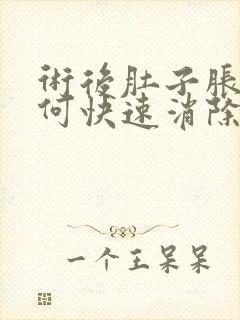 術後肚子脹
何快速消除
一个王呆呆